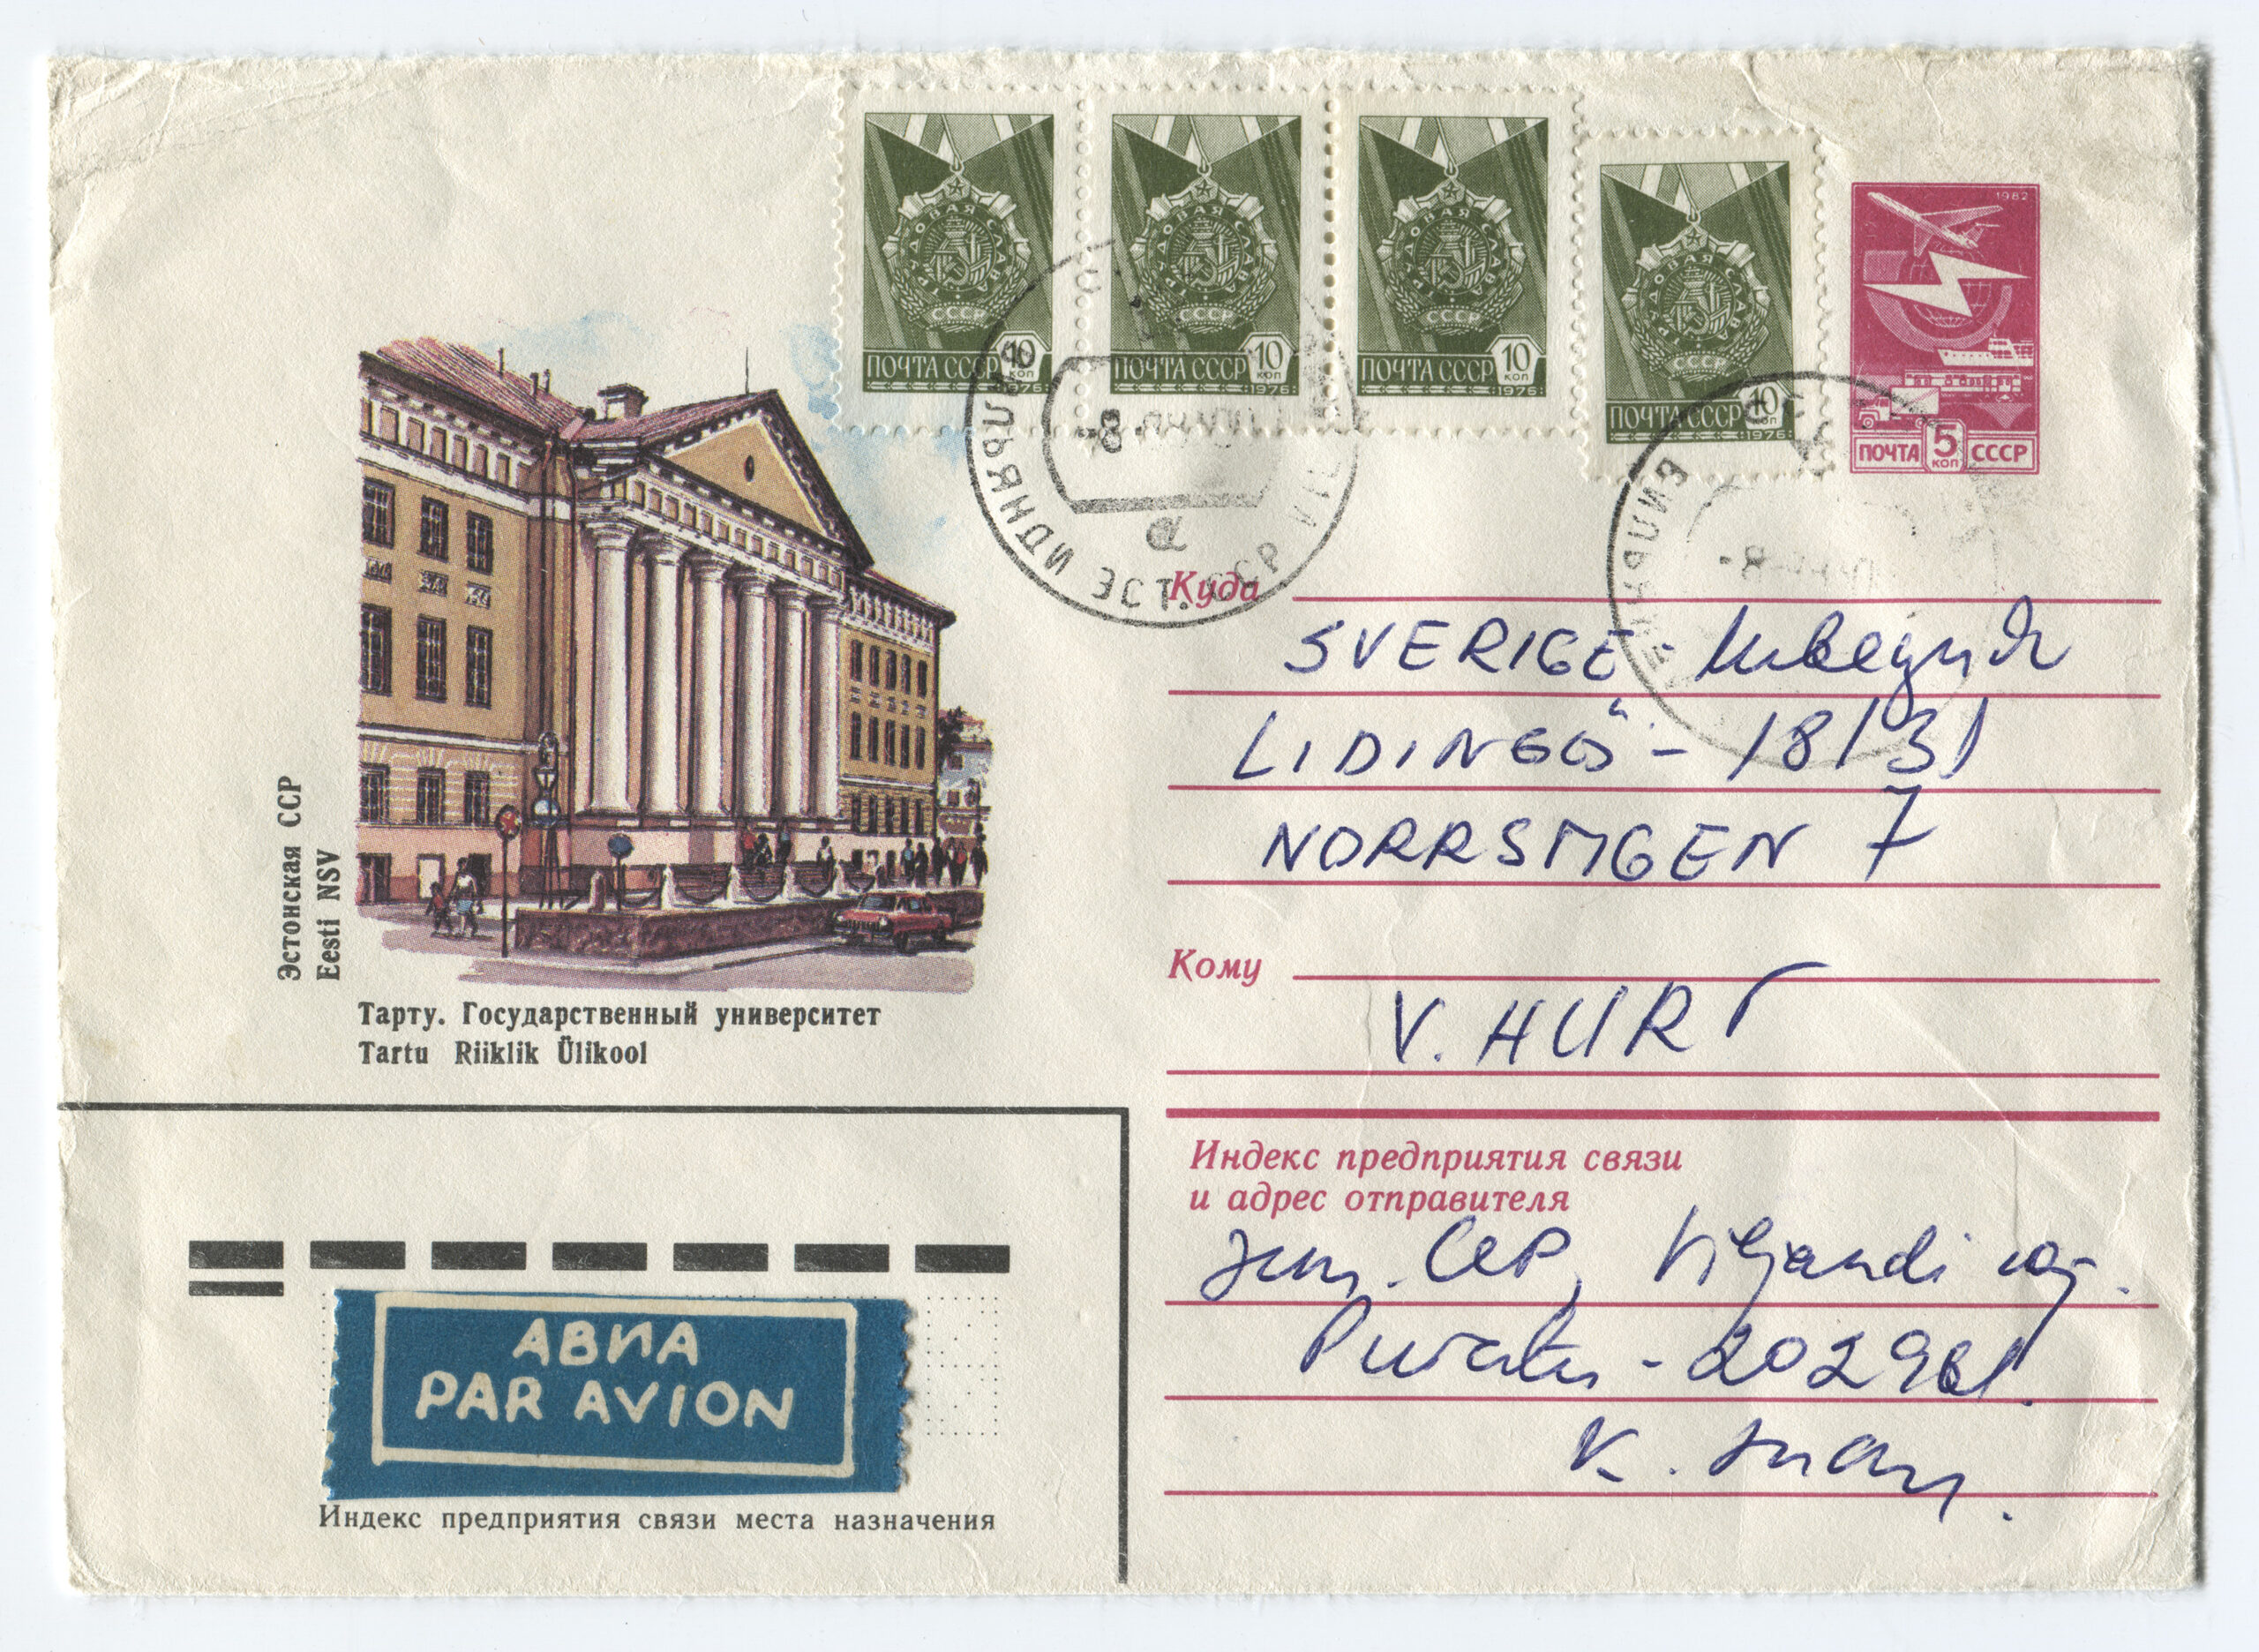 ТРУДОВАЯ СЛАВА
СССР
ПОЧТА СССР 10 КОП
1976
ТРУДОВАЯ СЛАВА
СССР
ПОЧТА СССР 10 КОП
1976
ТРУДОВАЯ СЛАВА
СССР
ПОЧТА СССР 10 КОП
1976
ТРУДОВАЯ СЛАВА
СССР
ПОЧТА СССР 10 КОП
1976
1982
ПОЧТА 5 КОП СССР
ВИЛЬЯНДИ ЭСТ. ССР
8
а
ВИЛЬЯНДИ
8
Эстонская ССР
Eesti NSV
Тарту. Государственный университет
Tartu Riiklik Ülikool
Куда
SVERIGE - Швеция
LIDINGÖ - 18131
NORRSTIGEN 7
Кому
V. HURT
Индекс предприятия связи
и адрес отправителя
ССР, Viljandi raj.
- 202961
K.
АВИА
PAR AVION
Индекс предприятия связи места назначения